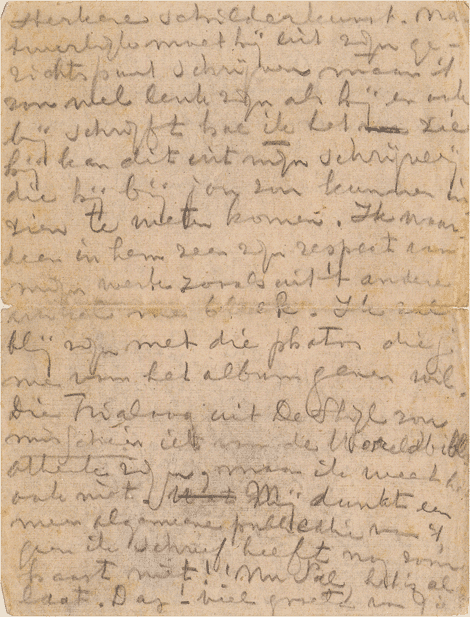 sterkere schilderkunst. Na-
tuurlijk moet hij uit zijn ge-
zichtspunt schrijven maar it
zou wel leuk zijn als hij er ook
bij schrijft hoe ik het zie
hij kan dit uit mijn schrijverij
die hij bij jou zou kunnen in
zien te weten komen. Ik waar-
deer in hem zeer zijn respect van
mijn werk zooals uit 't andere
bleek. Ik zal
blij zijn met die photos die j.
me van het album geven wil.
Die Trialoog uit De Stijl zou
misschien iets van de Wereldbibli
otheek zijn, maar ik weet het
ook niet. Mij dunkt een
meer algemeene publicatie van 't
geen ik schreef heeft nog zoon
haast niet! Nu Sal het is al
laat. Dag - veel groeten van Piet